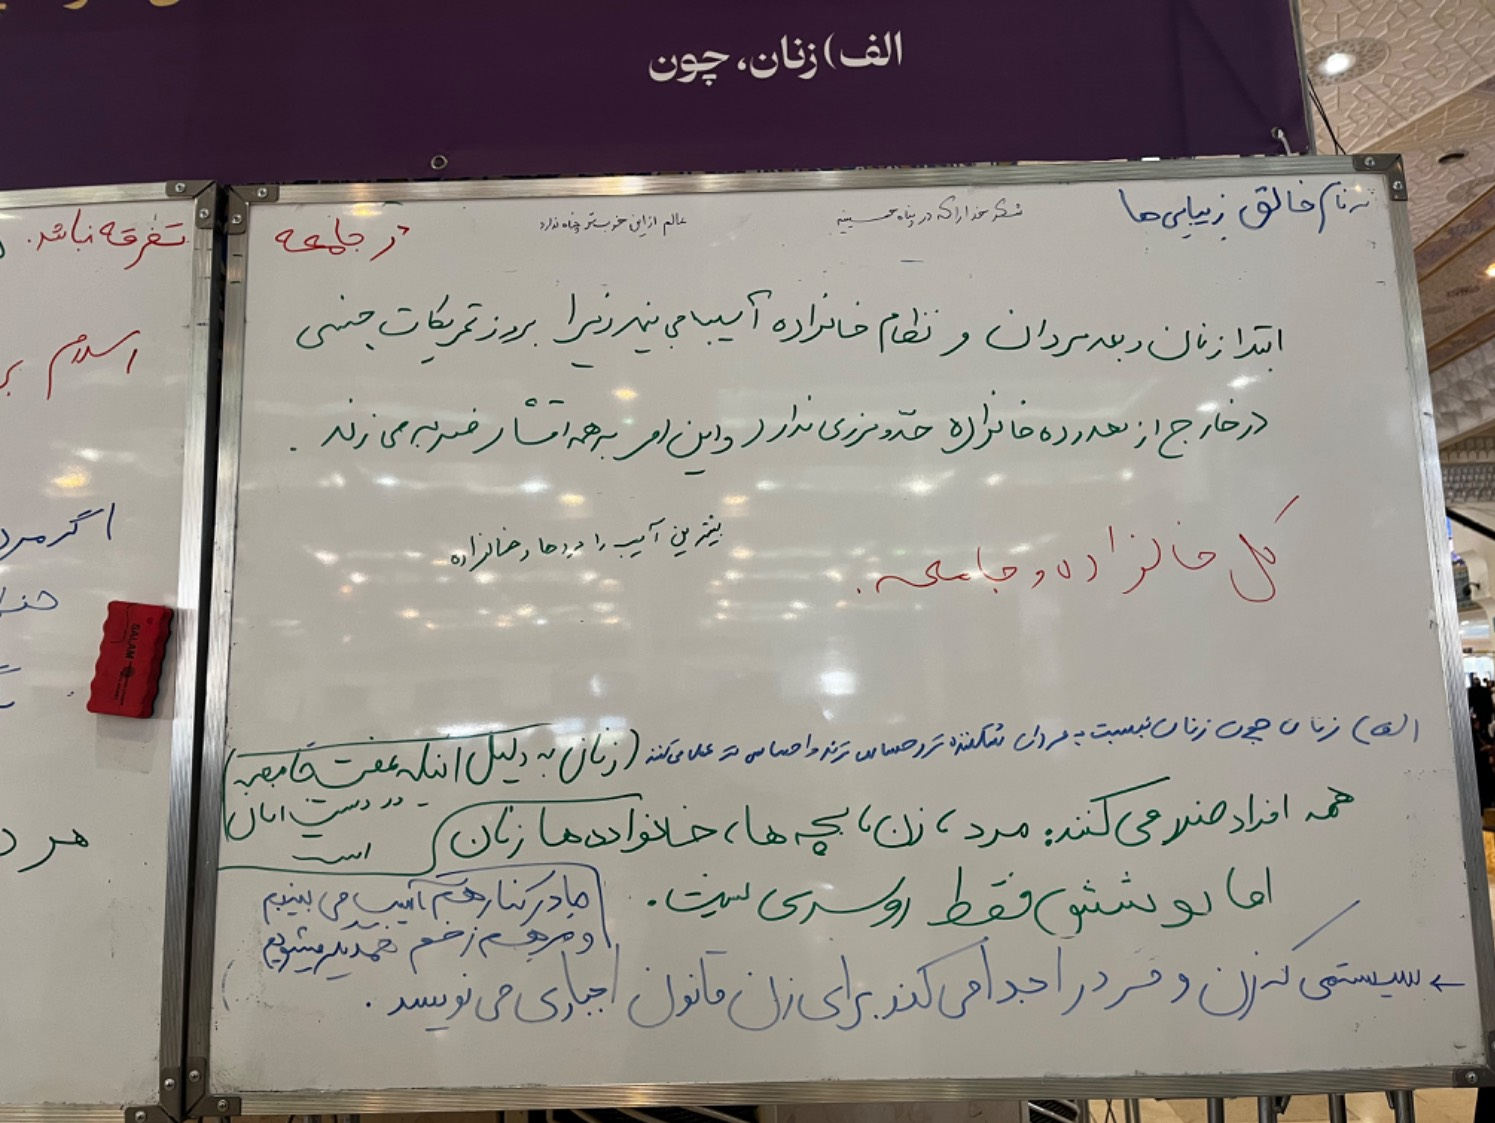 الف) زنان، چون
به نام خالق زیبایی‌ها
شکر خدا را که در پناه حسینیم
عالم از این خوب‌تر پناه ندارد
در جامعه
ابتدا زنان و بعد مردان و نظام خانواده آسیب می‌بینند زیرا بروز تحریکات جنسی
در خارج از محدوده خانواده حد و مرزی ندارد و این امر به همه اقشار ضربه می‌زند.
کل خانواده و جامعه.
بیشترین آسیب را مردها و خانواده
الف) زنان چون زنان نسبت به مردان شکننده‌تر و حساس‌ترند و احساسی‌تر عمل می‌کنند
(زنان به دلیل اینکه عفت جامعه
در دست آنان
است
همه افراد ضرر می‌کنند: مرد، زن، بچه‌ها، خانواده‌ها زنان
اما پوشش فقط روسری نیست.
ما در کنار هم آسیب می‌بینیم
و مرهم زخم همدیگر میشویم
← سیستمی که زن و مرد را جدا می‌کند برای زن قانون اجباری می‌نویسد.
تفرقه نباشد.
اسلام
اگر مرد
هر
SALAM